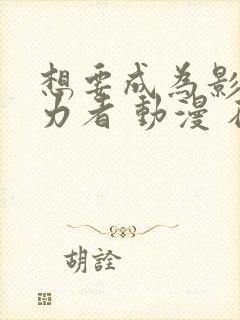 想要成為影
力者 動漫
胡詮